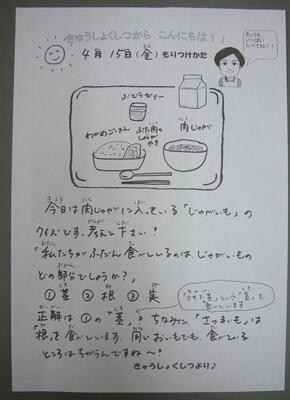 きゅうしょくしつから こんにちは！！
4月 15日(金)もりつけかた
きょうも、
いっぱい
たべてね!!
ぶどうゼリー
わかめごはん
ぶた肉の
しょうが
やき
肉じゃが
今日は肉じゃがに入っている「じゃがいも」の
クイズです。考えて下さい！
「私たちがふだん食べているのは、じゃがいもの
どの部分でしょうか？」
①茎 ②根 ③実
「地下茎」という「茎」を
食べています
正解は①の「茎」。ちなみに、「さつまいも」は
「根」を食べています。同じおいもでも、食べている
ところはちがうんですね〜？
きゅうしょくしつより♪